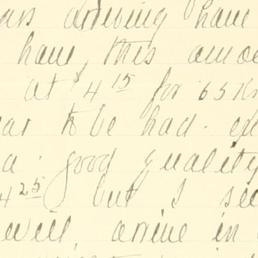 ars arriving have
have, this amo
at 4 15 for 65
ar to be had.
a good quality
4 25 but I se
will arrive in